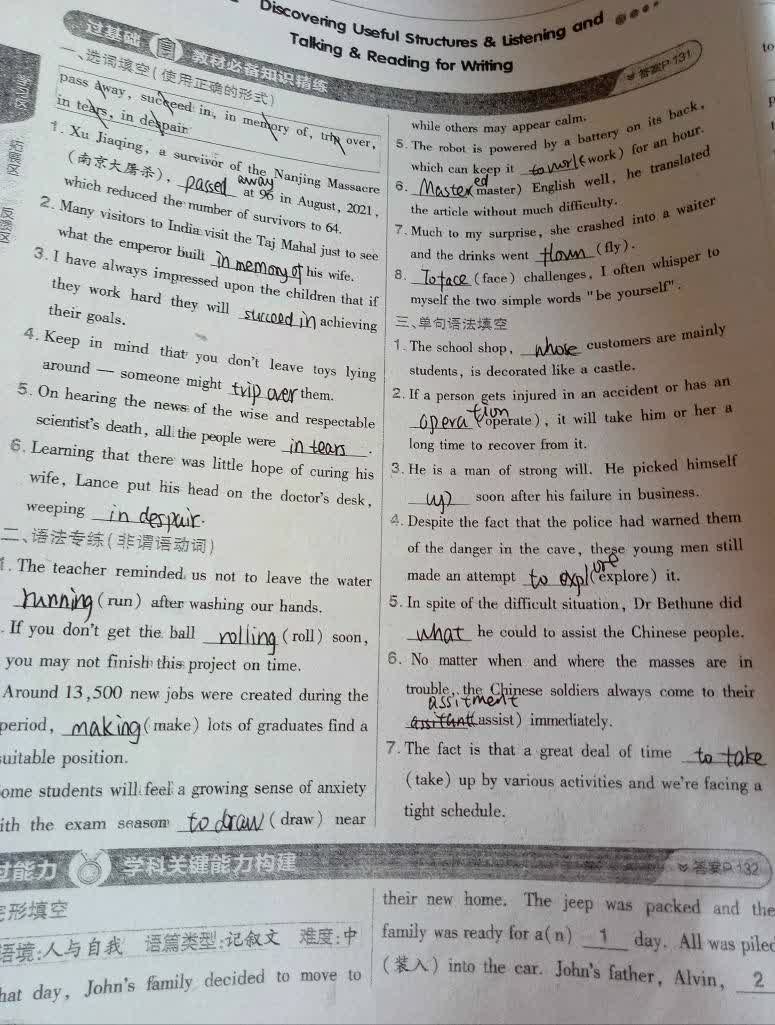 Discovering Useful Structures & Listening and
Talking & Reading for Writing
过基础 教材必备知识精练
答案P131
一、选词填空(使用正确的形式)
pass away, succeed in, in memory of, trip over,
in tears, in despair
1. Xu Jiaqing, a survivor of the Nanjing Massacre
(南京大屠杀), passed away at 96 in August, 2021,
which reduced the number of survivors to 64.
2. Many visitors to India visit the Taj Mahal just to see
what the emperor built in memory of his wife.
3. I have always impressed upon the children that if
they work hard they will succeed in achieving
their goals.
4. Keep in mind that you don't leave toys lying
around — someone might trip over them.
5. On hearing the news of the wise and respectable
scientist's death, all the people were in tears.
6. Learning that there was little hope of curing his
wife, Lance put his head on the doctor's desk,
weeping in despair.
二、语法专练(非谓语动词)
1. The teacher reminded us not to leave the water
running (run) after washing our hands.
. If you don't get the ball rolling (roll) soon,
you may not finish this project on time.
Around 13,500 new jobs were created during the
period, making (make) lots of graduates find a
suitable position.
ome students will feel a growing sense of anxiety
ith the exam season to draw (draw) near
while others may appear calm.
5. The robot is powered by a battery on its back,
which can keep it to work (work) for an hour.
6. Mastered (master) English well, he translated
the article without much difficulty.
7. Much to my surprise, she crashed into a waiter
and the drinks went flown (fly).
8. To face (face) challenges, I often whisper to
myself the two simple words "be yourself".
三、单句语法填空
1. The school shop, whose customers are mainly
students, is decorated like a castle.
2. If a person gets injured in an accident or has an
operation (operate), it will take him or her a
long time to recover from it.
3. He is a man of strong will. He picked himself
up soon after his failure in business.
4. Despite the fact that the police had warned them
of the danger in the cave, these young men still
made an attempt to explore (explore) it.
5. In spite of the difficult situation, Dr Bethune did
what he could to assist the Chinese people.
6. No matter when and where the masses are in
trouble, the Chinese soldiers always come to their
assitment (assist) immediately.
7. The fact is that a great deal of time to take
(take) up by various activities and we're facing a
tight schedule.
过能力 学科关键能力构建
答案P132
完形填空
语境:人与自我 语篇类型:记叙文 难度:中
hat day, John's family decided to move to
their new home. The jeep was packed and the
family was ready for a(n) 1 day. All was piled
(装入) into the car. John's father, Alvin, 2